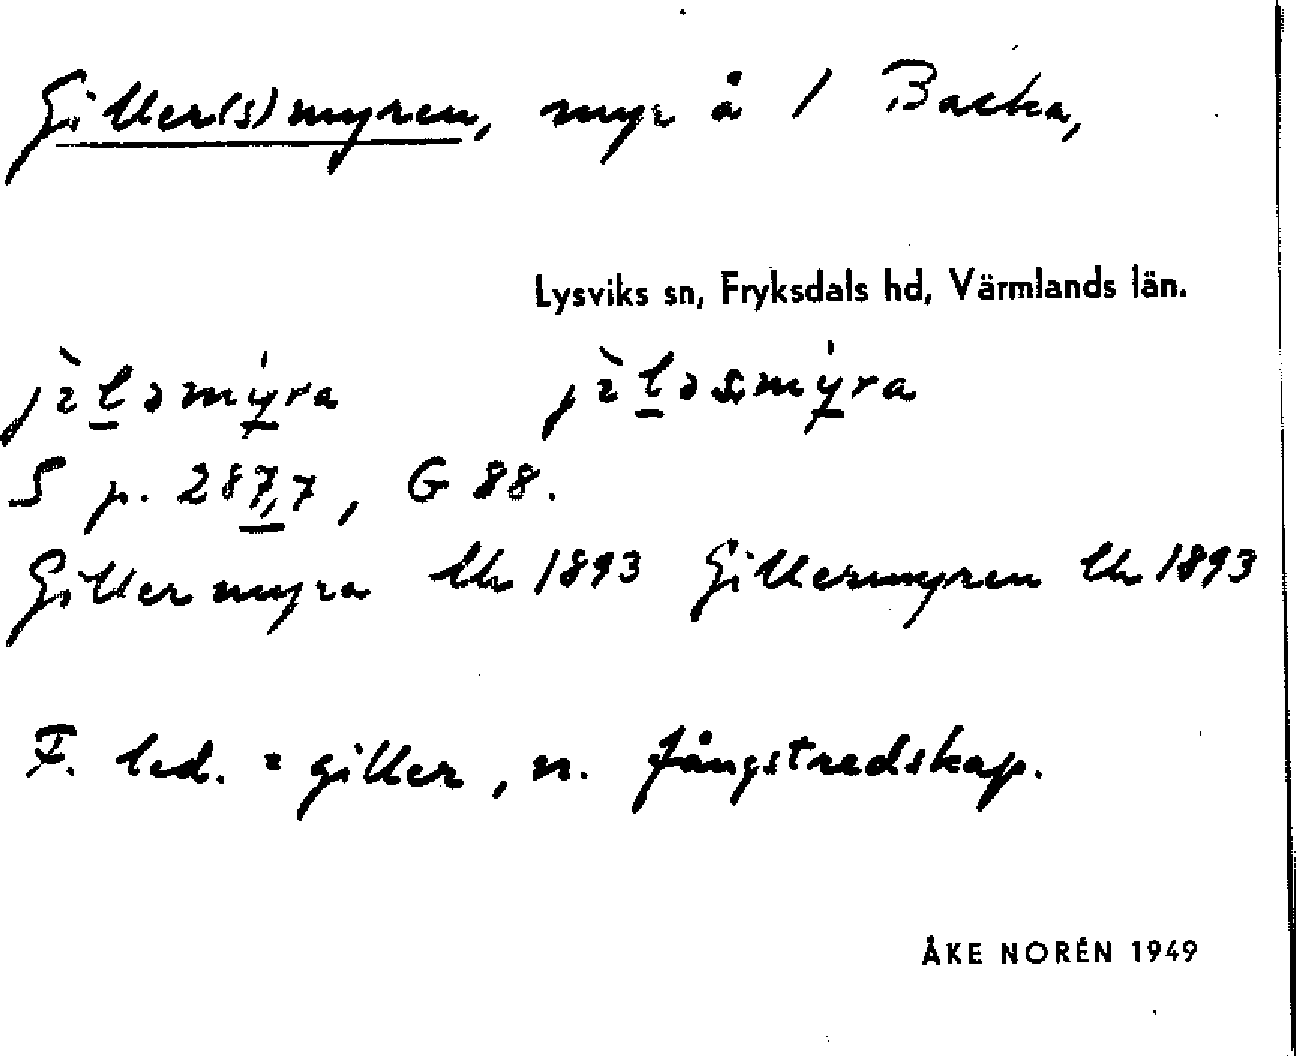 Giller(s)myren, myr å 1 Backa,
Lysviks sn, Fryksdals hd, Värmlands län.
jìləmy̍ra jìləsmy̍ra
S p. 287,7, G 88.
Gillermyra lk 1893 Gillermyren lk 1893
F. led. = giller, n. fångstredskap.
ÅKE NORÉN 1949